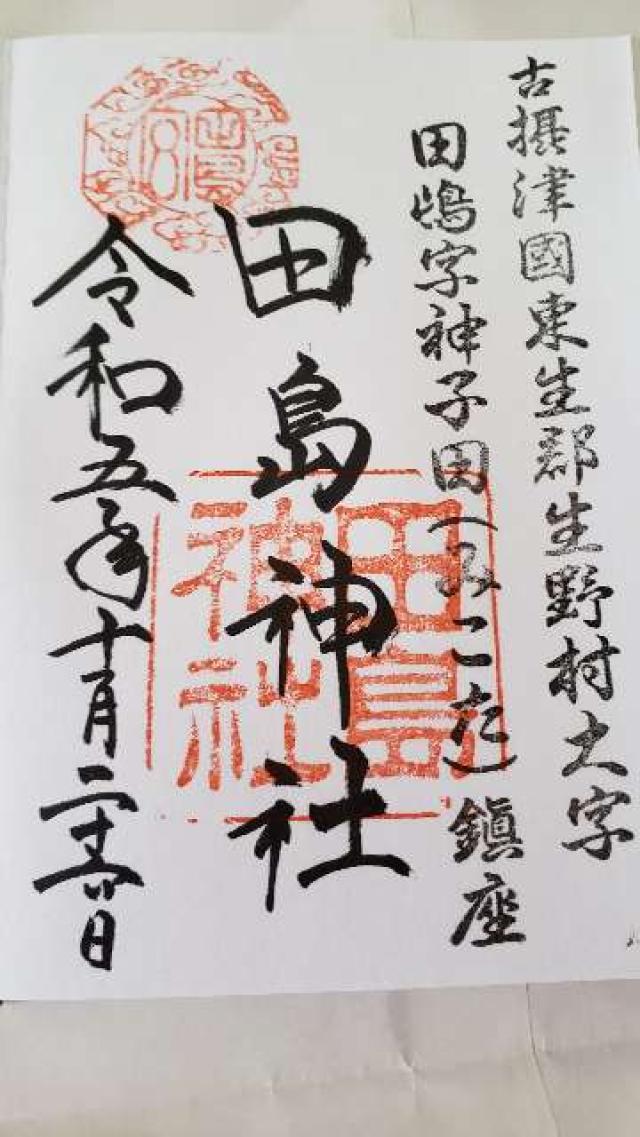 古摂津國東生郡生野村大字
田嶋字神子田(みこた)鎮座
田島神社
田島神社
令和五年十月二十六日